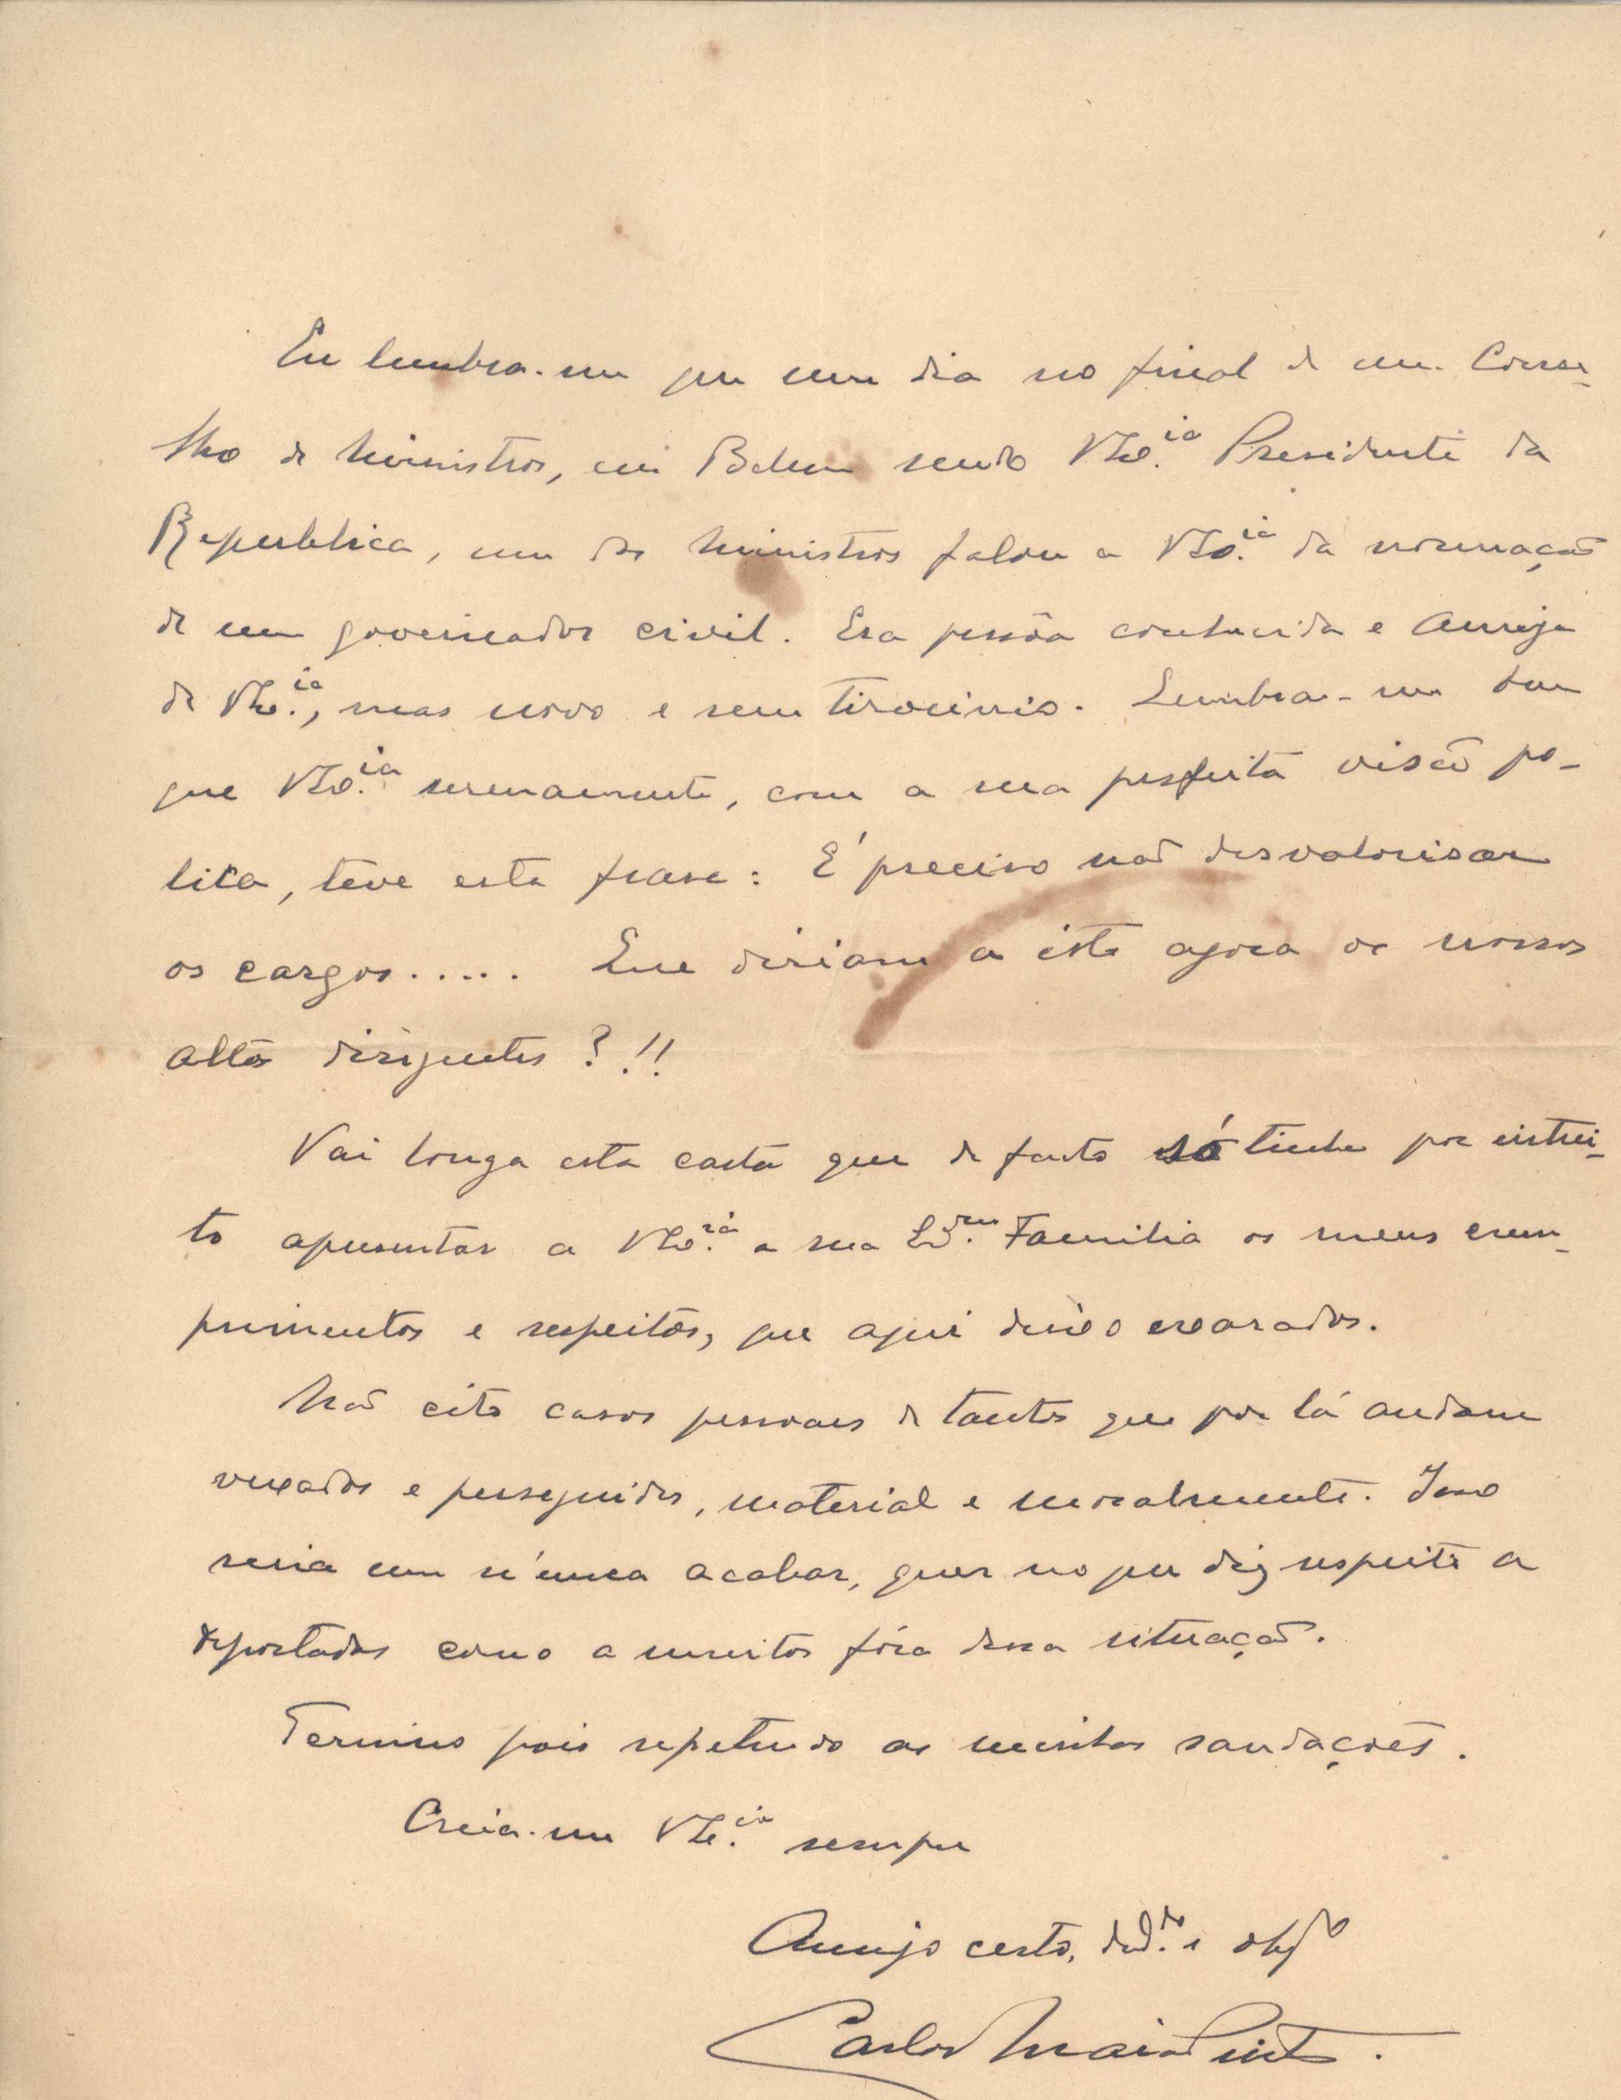 Eu lembra-me que um dia no final de um Conse-
lho de Ministros, em Belem sendo VEx.ia Presidente da
Republica, um dos Ministros falou a VEx.ia da nomeação
de um governador civil. Era pessôa conhecida e amiga
de VEx.ia, mas novo e sem tirocinio. Lembra-me bem
que VEx.ia serenamente, com a sua perfeita visão po-
litica, teve esta frase: É preciso não desvalorisar
os cargos..... Que diriam a isto agora os nossos
altos dirigentes?!!
Vai longa esta carta que de facto só tinha por intui-
to apresentar a VEx.ia a sua Ex.ma Familia os meus cum-
primentos e respeitos, que aqui deixo exarados.
Não cito casos pessoaes de tantos que por lá andam
vexados e perseguidos, material e moralmente. Isso
seria um nunca acabar, quer no que diz respeito a
deportados como a muitos fóra dessa situação.
Termino pois repetindo as minhas saudações.
Creia-me VEx.ia sempre
Amigo certo, ded.do e obgdo
Carlos Maia Pinto.